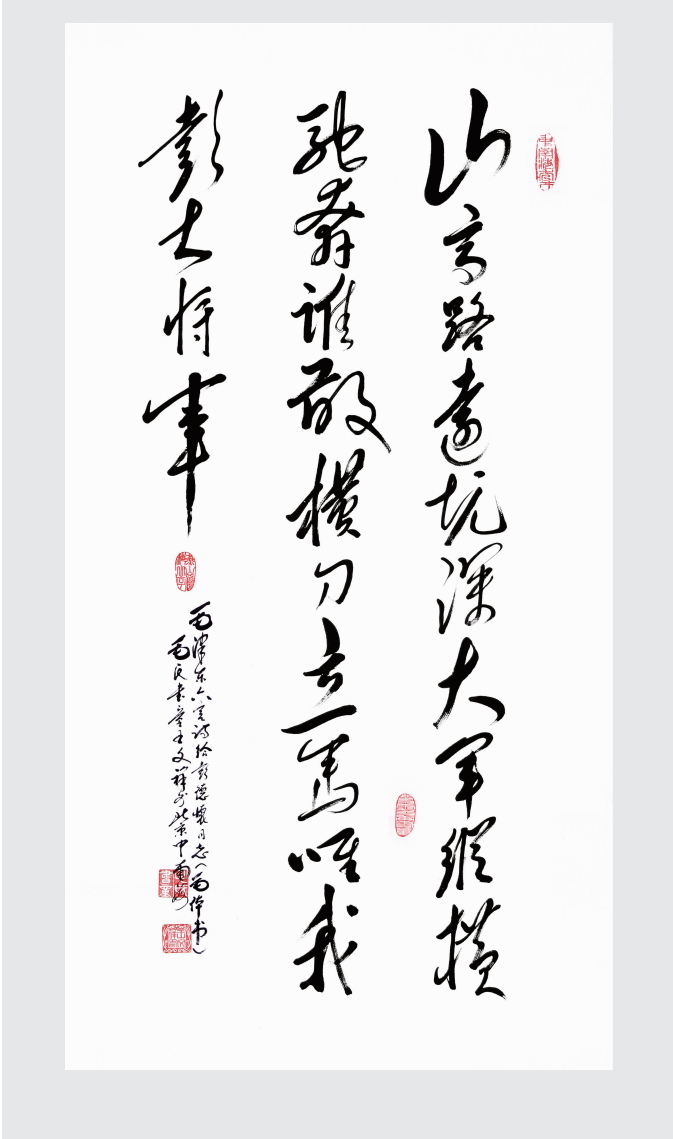 山高路遠坑深大军縱橫
馳奔誰敢橫刀立馬唯我
彭大将軍
毛澤东六言詩给彭德懷同志(毛体书)
毛氏书童王文祥于北京中南海